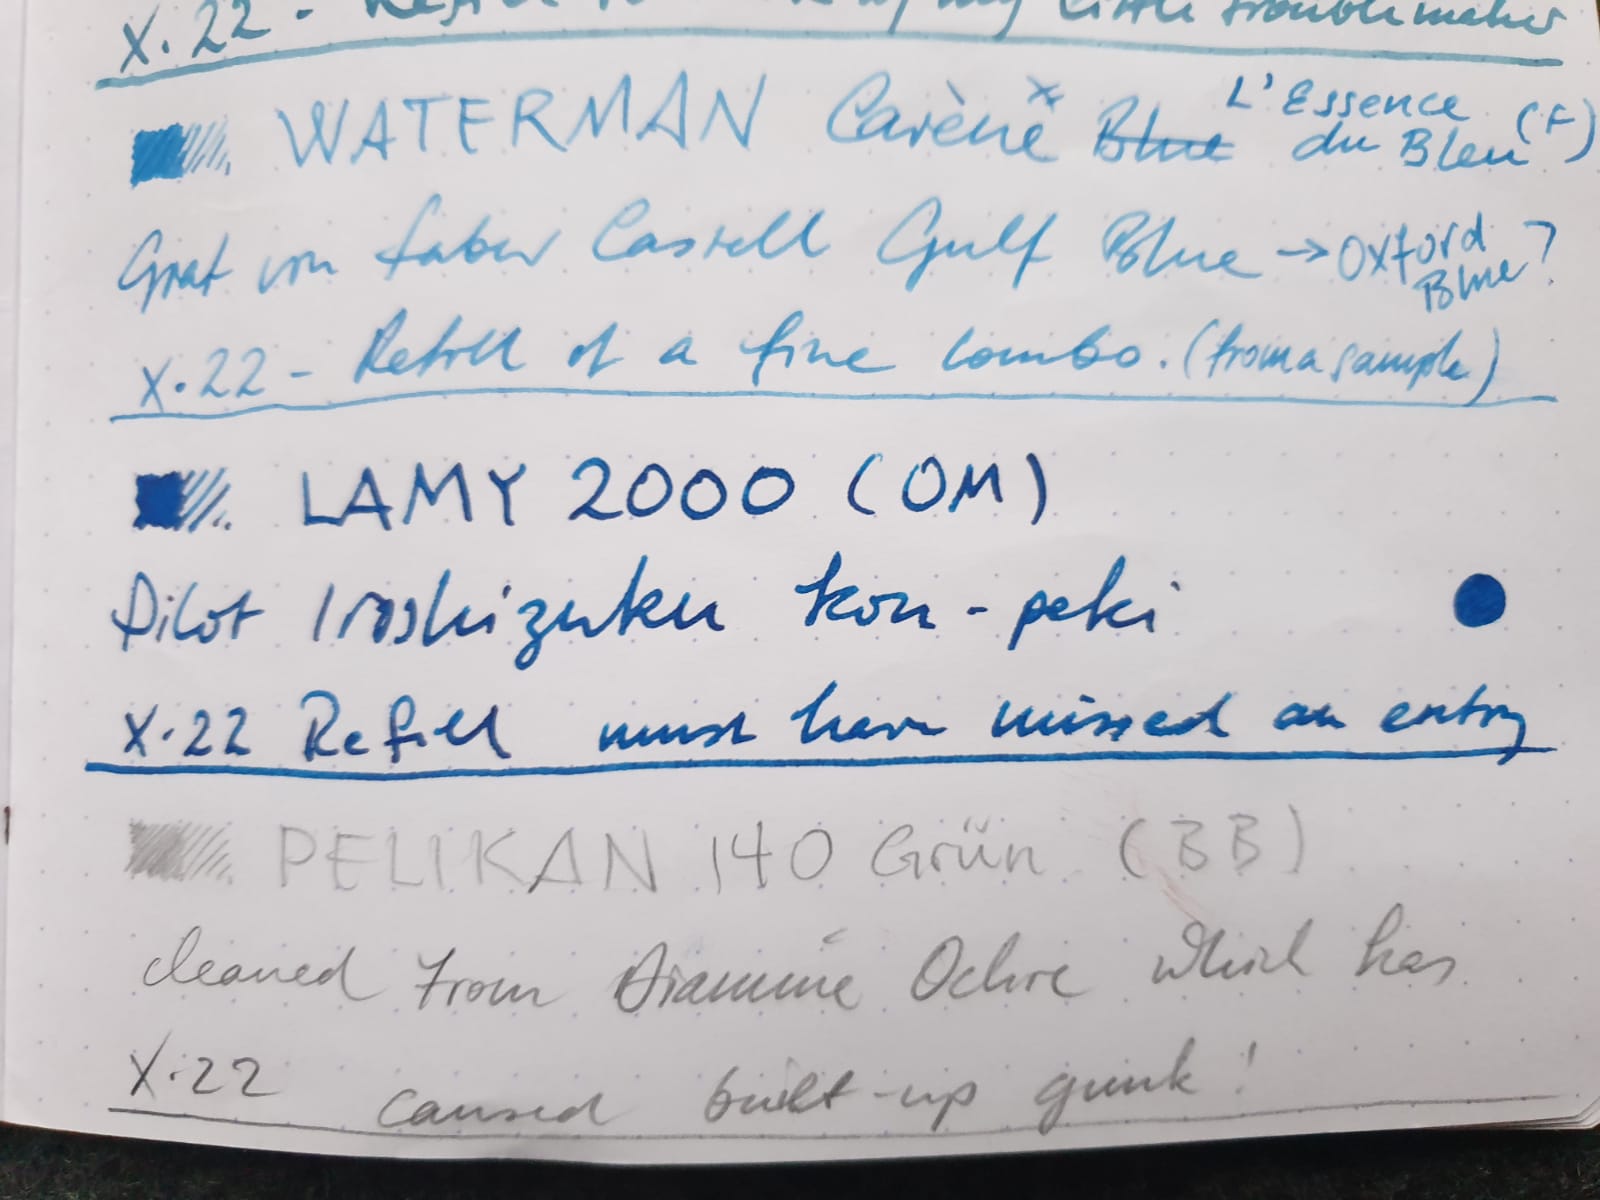 X.22 - Refill my little troublemaker
WATERMAN Carène Blue L'Essence du Bleu (F)
Graf von Faber Castell Gulf Blue → Oxford Blue?
X.22 - Refill of a fine combo. (from a sample)
LAMY 2000 (OM)
Pilot Iroshizuku kon-peki
X.22 Refill must have missed an entry
PELIKAN 140 Grün (BB)
cleaned from Diamine Ochre which has
X.22 caused built-up gunk!